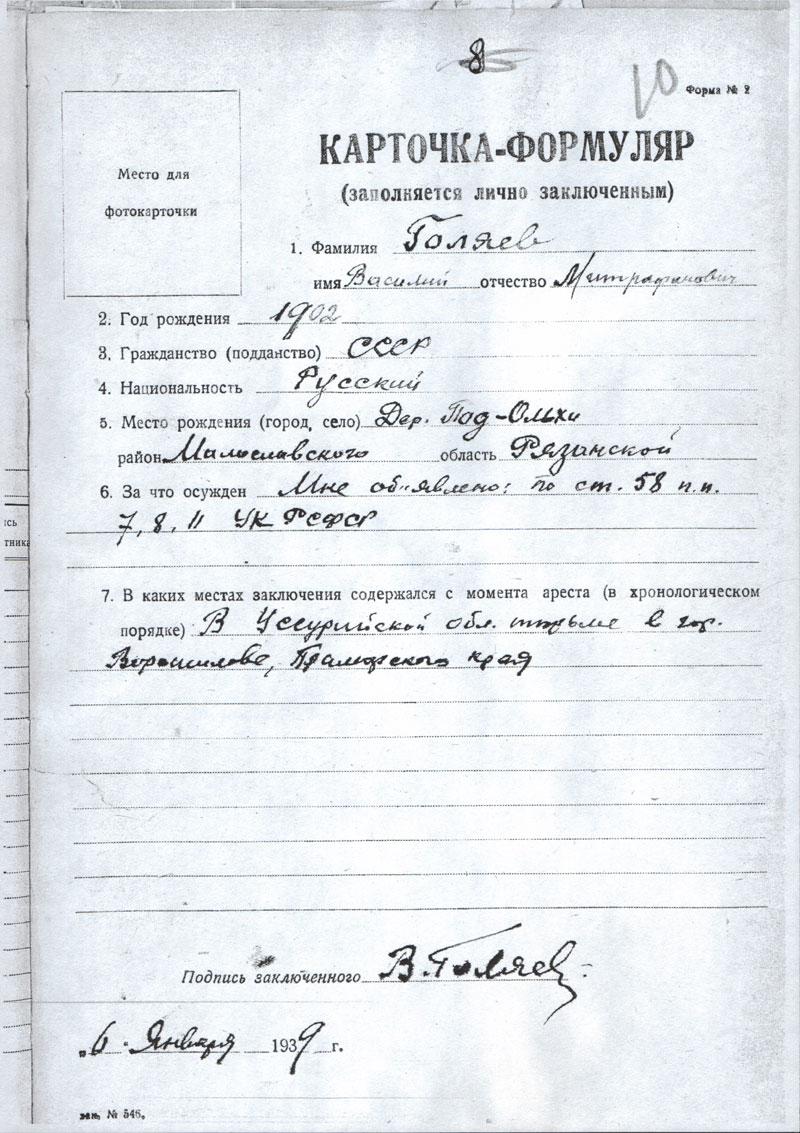 8
10
Форма № 2
Место для
фотокарточки
КАРТОЧКА-ФОРМУЛЯР
(заполняется лично заключенным)
1. Фамилия Голяев
имя Василий отчество Митрофанович
2. Год рождения 1902
3. Гражданство (подданство) СССР
4. Национальность Русский
5. Место рождения (город, село) Дер. Под-Ольхи
район Милославского область Рязанской
6. За что осужден Мне об'явлено: по ст. 58 п.п.
7, 8, 11 УК РСФСР
7. В каких местах заключения содержался с момента ареста (в хронологическом
порядке) В Уссурийской обл. тюрьме в гор.
Ворошилове, Приморского края
Подпись заключенного В. Голяев
„6" Января 1939 г.
зак. № 546.